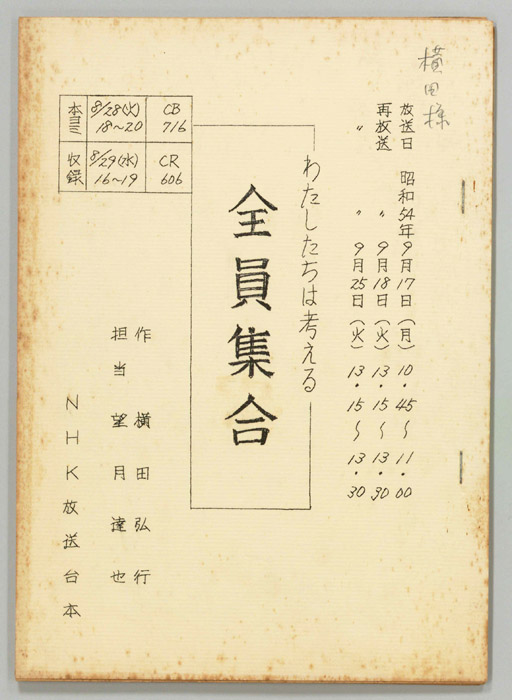 横田様
放送日 昭和54年9月17日（月）10・45〜11・00
再放送 〃 9月18日（火）13・15〜13・30
〃 〃 9月25日（火）13・15〜13・30
わたしたちは考える
全員集合
本ヨミ 8/28(火) 18〜20 CB 716
収録 8/29(水) 16〜19 CR 606
作 横田弘行
担当 望月達也
NHK放送台本